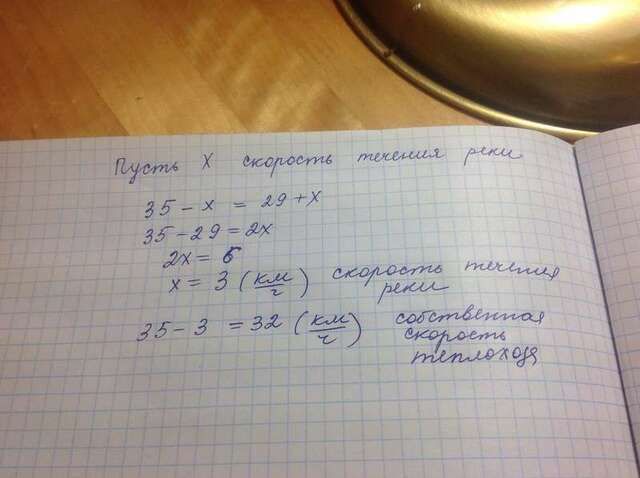 Пусть X скорость течения реки
35 - x = 29 + x
35 - 29 = 2x
2x = 6
x = 3 (км/ч) скорость течения реки
35 - 3 = 32 (км/ч) собственная скорость теплохода